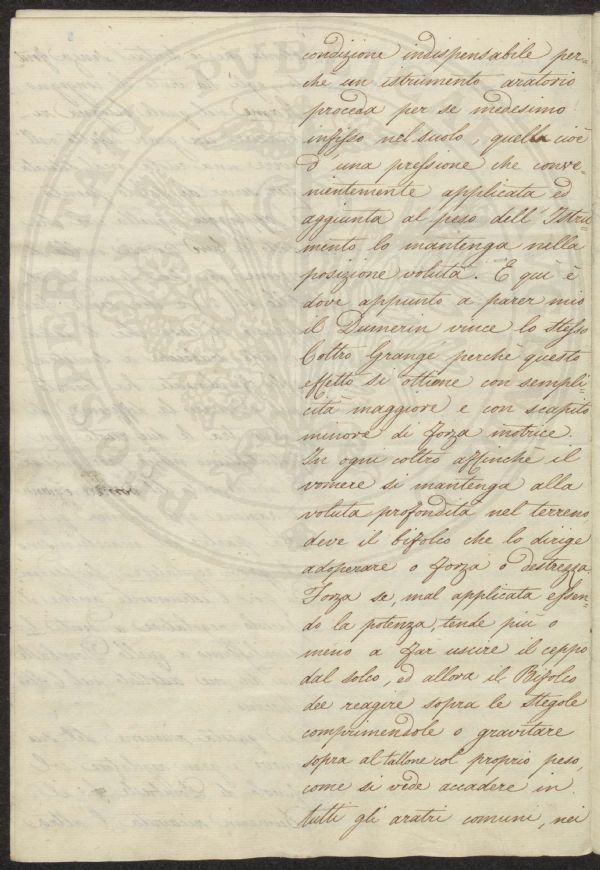 condizione indispensabile per=
chè un istrumento aratorio
proceda per se medesimo
infisso nel suolo, quella cioè
d'una pressione che conve=
nientemente applicata ed
aggiunta al peso dell'Istru
mento lo mantenga nella
posizione voluta. E quì è
dove appunto a parer mio
il Dumerin vince lo stesso
Coltro Grangé perchè questo
effetto si ottiene con sempli=
cità maggiore e con scapito
minore di forza motrice.
In ogni coltro affinchè il
vomere si mantenga alla
voluta profondità nel terreno
deve il bifolco che lo dirige
adoperare o forza o destrezza.
Forza se, mal applicata essen=
do la potenza, tende più o
meno a far uscire il ceppo
dal solco, ed allora il Bifolco
dee reagire sopra le stegole
comprimendole o gravitare
sopra al tallone col proprio peso,
come si vede accadere in
tutti gli aratri comuni, nei